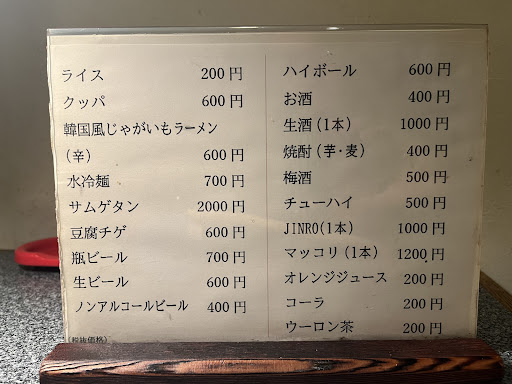 ライス 200円
クッパ 600円
韓国風じゃがいもラーメン
（辛） 600円
水冷麺 700円
サムゲタン 2000円
豆腐チゲ 600円
瓶ビール 700円
生ビール 600円
ノンアルコールビール 400円
（税抜価格）
ハイボール 600円
お酒 400円
生酒（1本） 1000円
焼酎（芋・麦） 400円
梅酒 500円
チューハイ 500円
JINRO(1本) 1000円
マッコリ（1本） 1200円
オレンジジュース 200円
コーラ 200円
ウーロン茶 200円